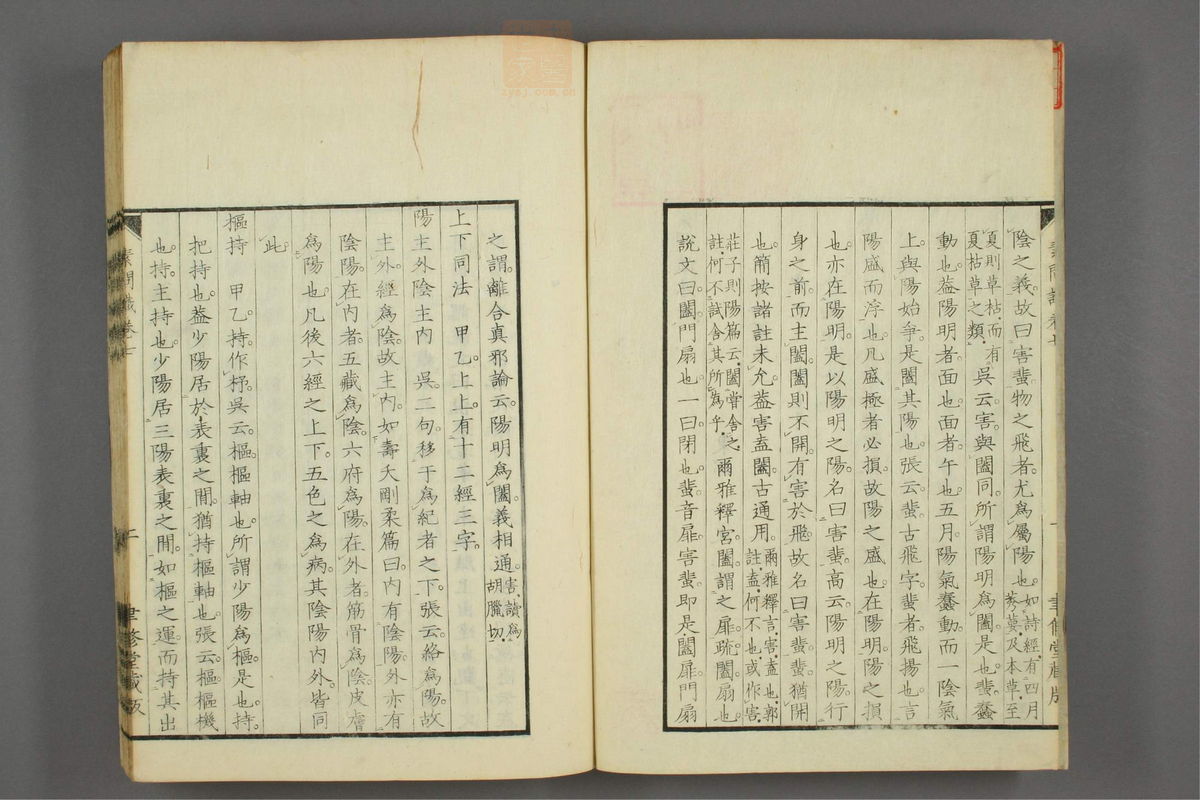 陰之義故曰害蜚物之飛者尤爲屬陽也如詩經有四月
秀葽及本草至
夏則草枯而有
夏枯草之類吳云害與闔同所謂陽明爲闔是也蜚蠢
動也蓋陽明者面也面者午也五月陽氣蠢動而一陰氣
上與陽始爭是闔其陽也張云蜚古飛字蜚者飛揚也言
陽盛而浮也凡盛極者必損故陽之盛也在陽明陽之損
也亦在陽明是以陽明之陽名曰害蜚高云陽明之陽行
身之前而主闔闔則不開有害於飛故名曰害蜚蜚猶開
也簡按諸註未允蓋害盍闔古通用爾雅釋言害盍也郭
註盍何不也或作害
莊子則陽篇云闔嘗舍之
註何不試舍其所爲乎爾雅釋宮闔謂之扉疏闔扇也
說文曰闔門扇也一曰閉也蜚音扉害蜚即是闔扉門扇
素問識卷七
聿修堂藏版
之謂離合真邪論云陽明爲闔義相通害讀爲
胡臘切
上下同法 甲乙上上有十二經三字
陽主外陰主内 吳二句移于爲紀者之下張云絡爲陽故
主外經爲陰故主内如壽夭剛柔篇曰内有陰陽外亦有
陰陽在内者五藏爲陰六府爲陽在外者筋骨爲陰皮膚
爲陽也凡後六經之上下五色之爲病其陰陽内外皆同
此
樞持 甲乙持作杼吳云樞樞軸也所謂少陽爲樞是也持
把持也蓋少陽居於表裏之間猶持樞軸也張云樞樞機
也持主持也少陽居三陽表裏之間如樞之運而持其出
素問識卷七
聿修堂藏版
zysj.com.cn